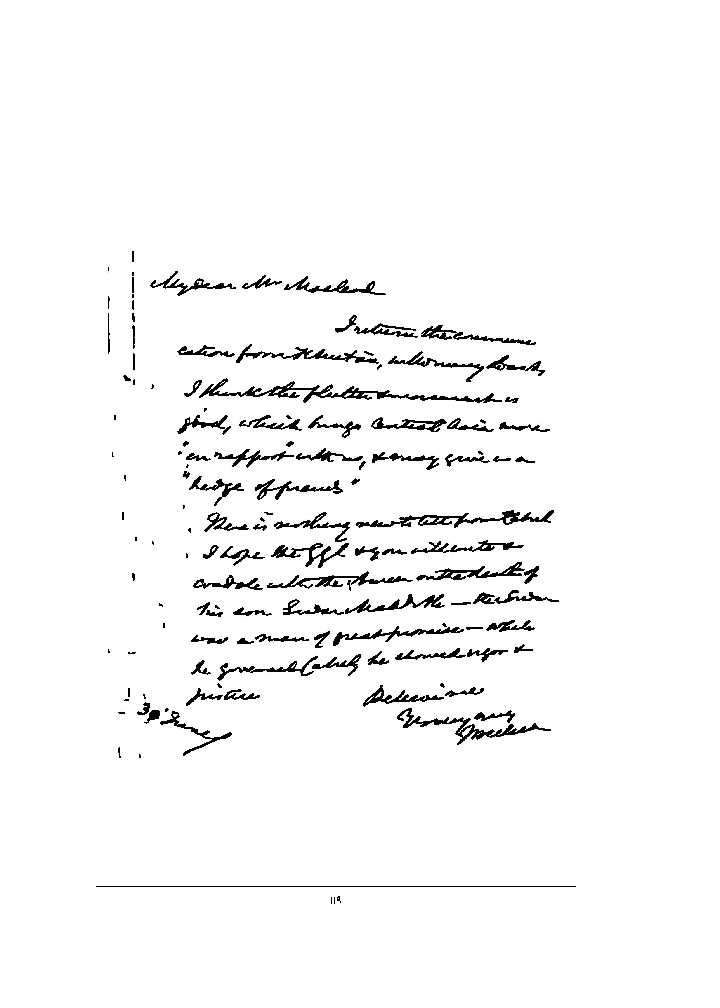 My dear Mr Macleod
I return the communi
cation from Khutan, with many thanks
I think the flutter & movement is
good, which brings Central Asia more
"en rapport" with us, & may give us a
"hedge of friends"
There is nothing new to tell from Cabul
I hope the GGl & you will write &
condole with the Ameer on the death of
his son Sirdar Mahd Ali — the Sirdar
was a man of great promise — while
he governed Cabul, he showed vigor &
justice
Believe me
Yours very
30' June
119